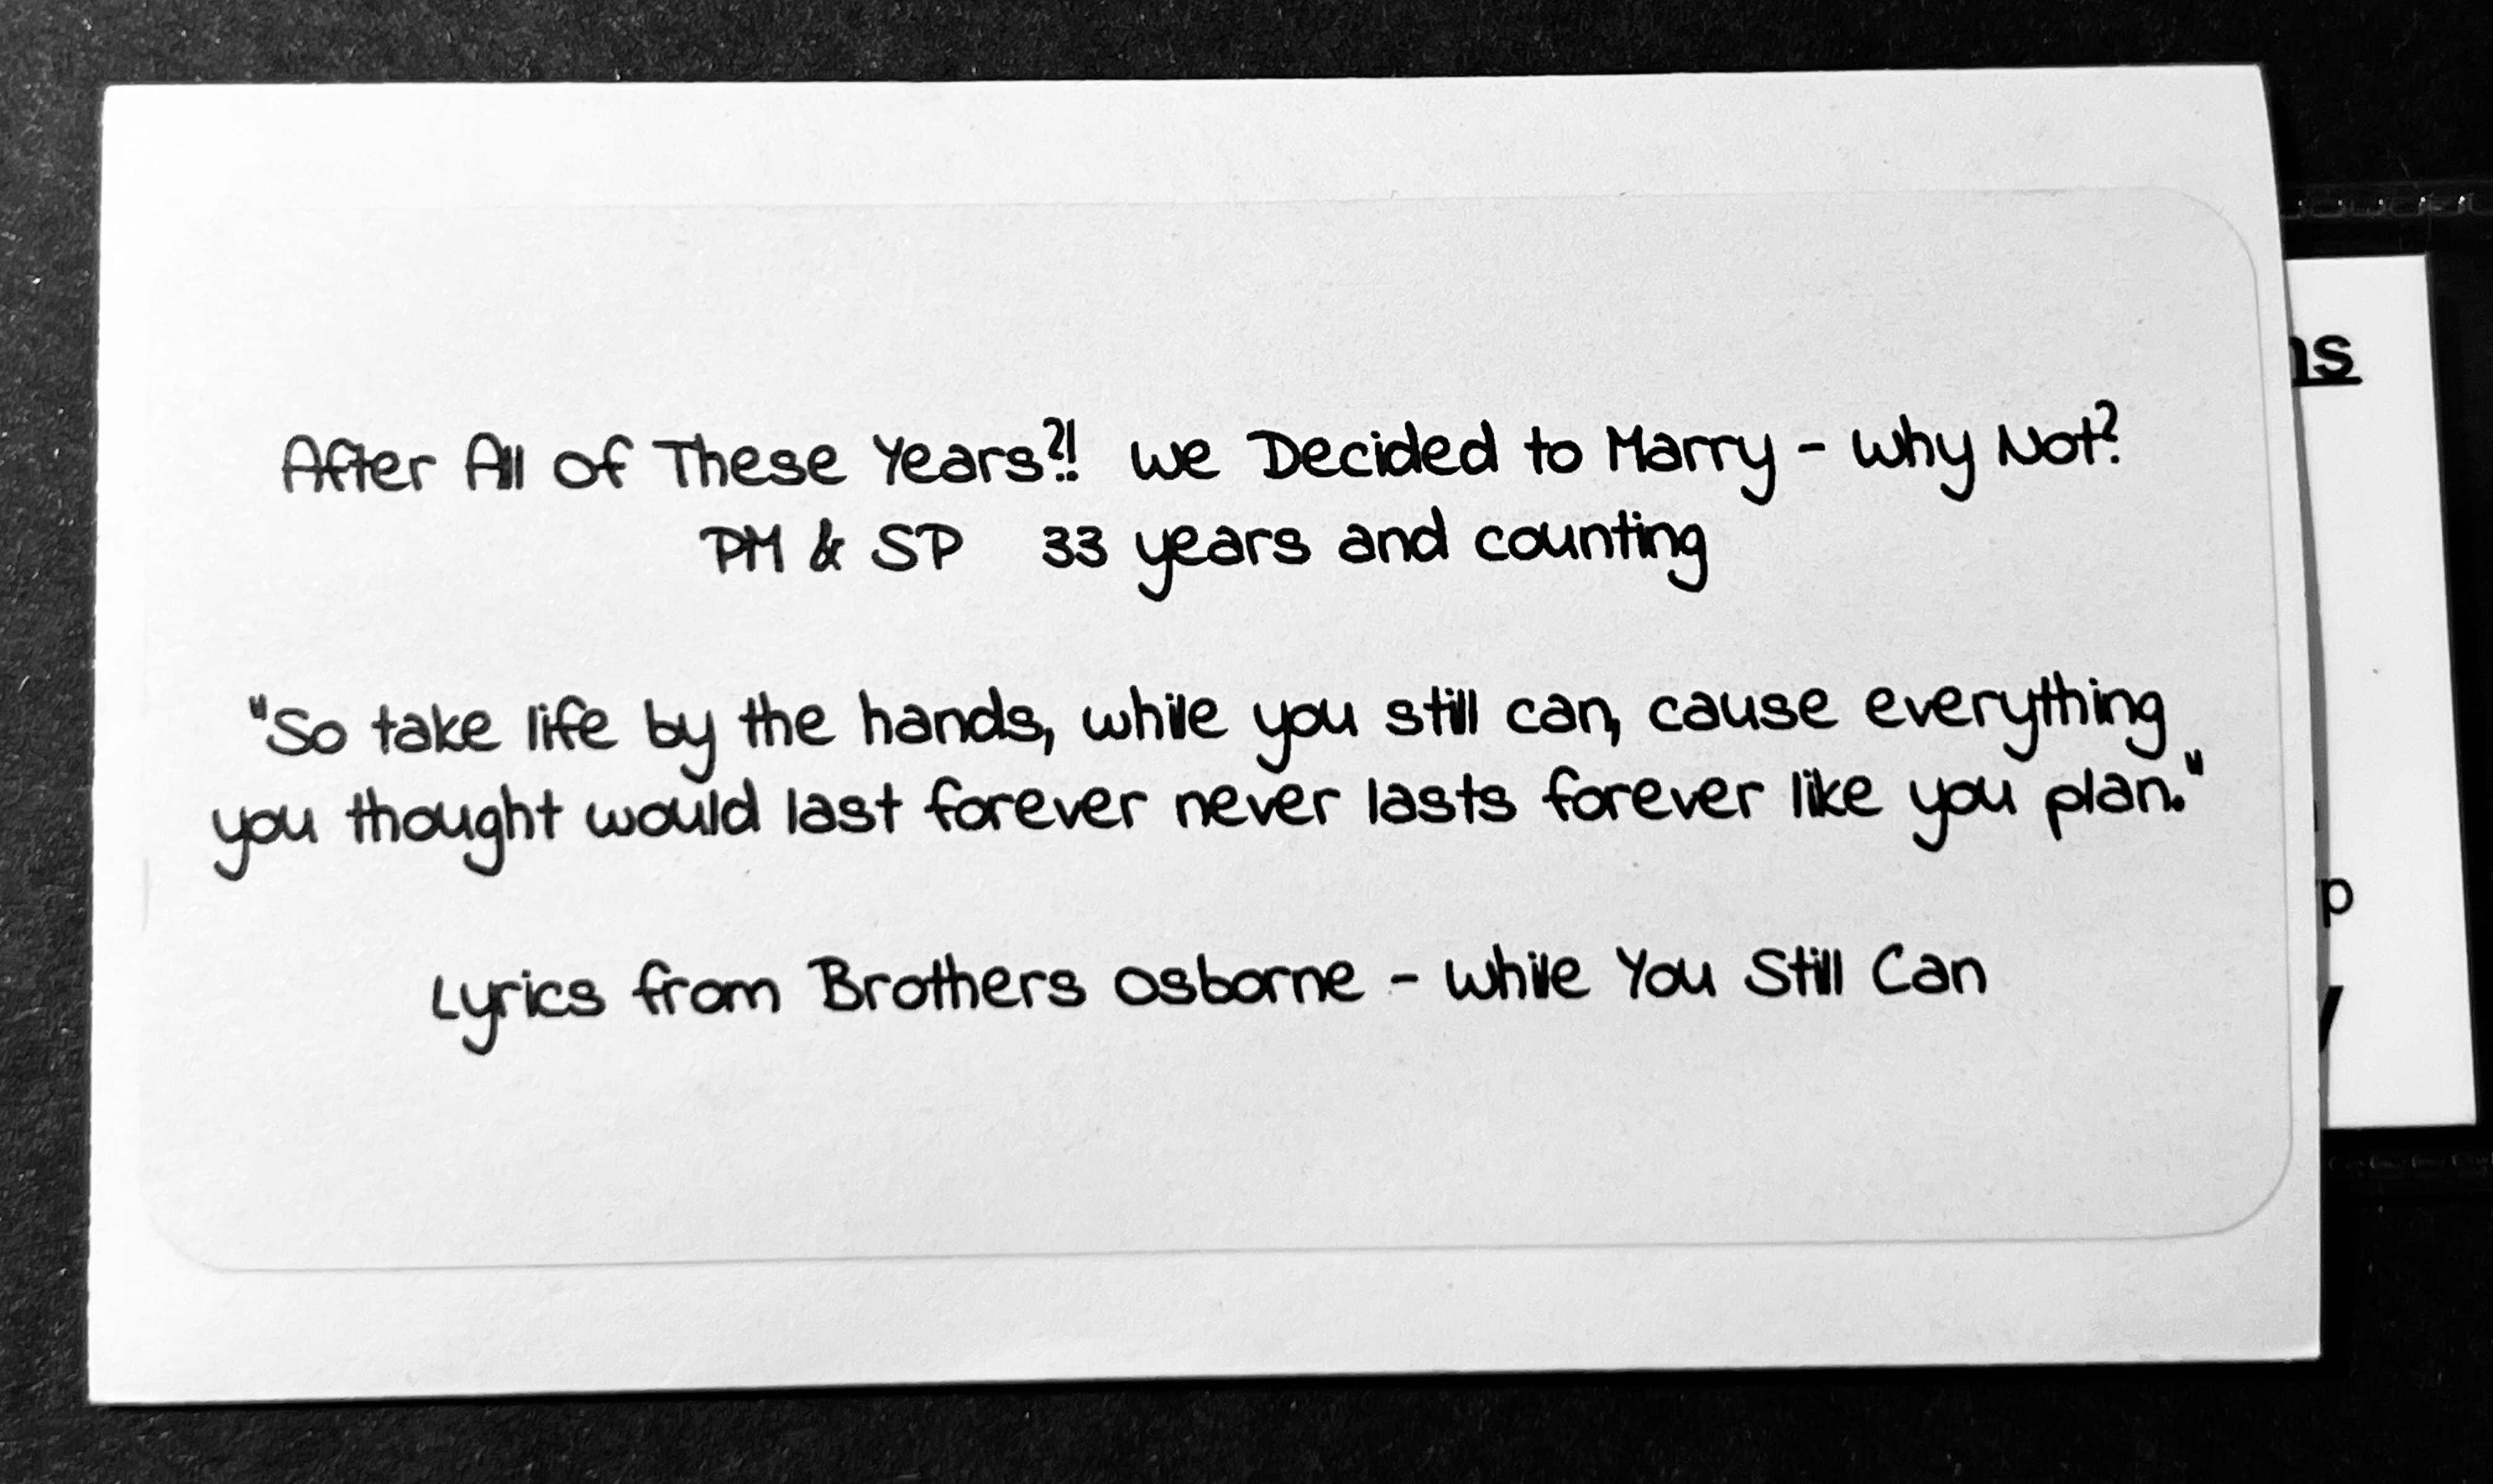 After All of These Years?! We Decided to Marry - Why Not?
PM & SP 33 years and counting
"So take life by the hands, while you still can, cause everything
you thought would last forever never lasts forever like you plan."
Lyrics from Brothers Osborne - While You Still Can